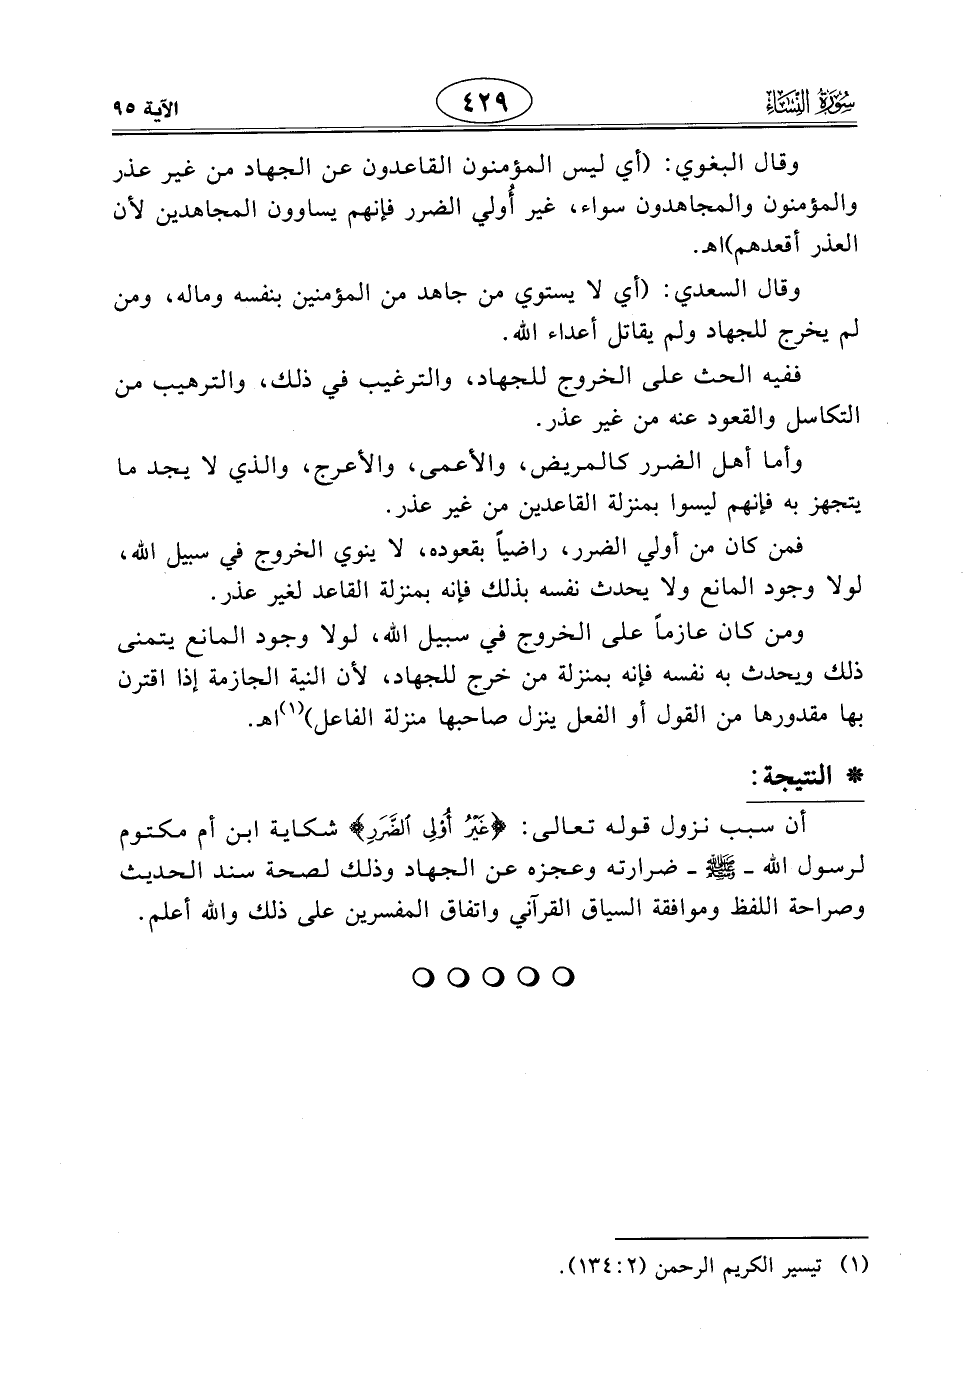 سُورَةُ النِّسَاءِ
٤٢٩
الآية ٩٥
وقال البغوي: (أي ليس المؤمنون القاعدون عن الجهاد من غير عذر
والمؤمنون والمجاهدون سواء، غير أُولي الضرر فإنهم يساوون المجاهدين لأن
العذر أقعدهم)اهـ.
وقال السعدي: (أي لا يستوي من جاهد من المؤمنين بنفسه وماله، ومن
لم يخرج للجهاد ولم يقاتل أعداء الله.
ففيه الحث على الخروج للجهاد، والترغيب في ذلك، والترهيب من
التكاسل والقعود عنه من غير عذر.
وأما أهل الضرر كالمريض، والأعمى، والأعرج، والذي لا يجد ما
يتجهز به فإنهم ليسوا بمنزلة القاعدين من غير عذر.
فمن كان من أولي الضرر، راضياً بقعوده، لا ينوي الخروج في سبيل الله،
لولا وجود المانع ولا يحدث نفسه بذلك فإنه بمنزلة القاعد لغير عذر.
ومن كان عازماً على الخروج في سبيل الله، لولا وجود المانع يتمنى
ذلك ويحدث به نفسه فإنه بمنزلة من خرج للجهاد، لأن النية الجازمة إذا اقترن
بها مقدورها من القول أو الفعل ينزل صاحبها منزلة الفاعل)(١)اهـ.
* النتيجة:
أن سبب نزول قوله تعالى: ﴿غَيْرُ أُوْلِي ٱلضَّرَرِ﴾ شكاية ابن أم مكتوم
لرسول الله - ﷺ - ضرارته وعجزه عن الجهاد وذلك لصحة سند الحديث
وصراحة اللفظ وموافقة السياق القرآني واتفاق المفسرين على ذلك والله أعلم.
(١) تيسير الكريم الرحمن (٢:١٣٤).